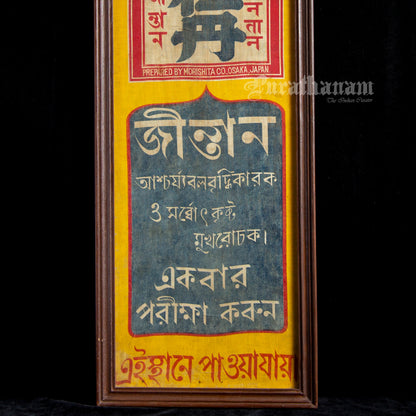 仁丹
PREPARED BY MORISHITA CO., OSAKA, JAPAN
Purathanam
The Indian Curator
জীন্তান
আশ্চর্য্যবলবৃদ্ধিকারক
ও সর্ব্বোৎকৃষ্ট
মুখরোচক।
একবার
পরীক্ষা করুন
এইস্থানে পাওয়াযায়